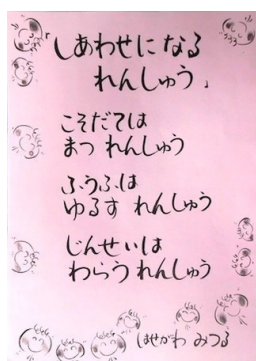 「しあわせになる
れんしゅう」
こそだては
まつ れんしゅう
ふうふは
ゆるす れんしゅう
じんせいは
わらう れんしゅう
はせがわ みつる